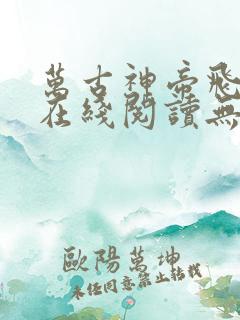 萬古神帝飛
在綫閱讀無
歐陽萬坤
未經同意禁止轉載